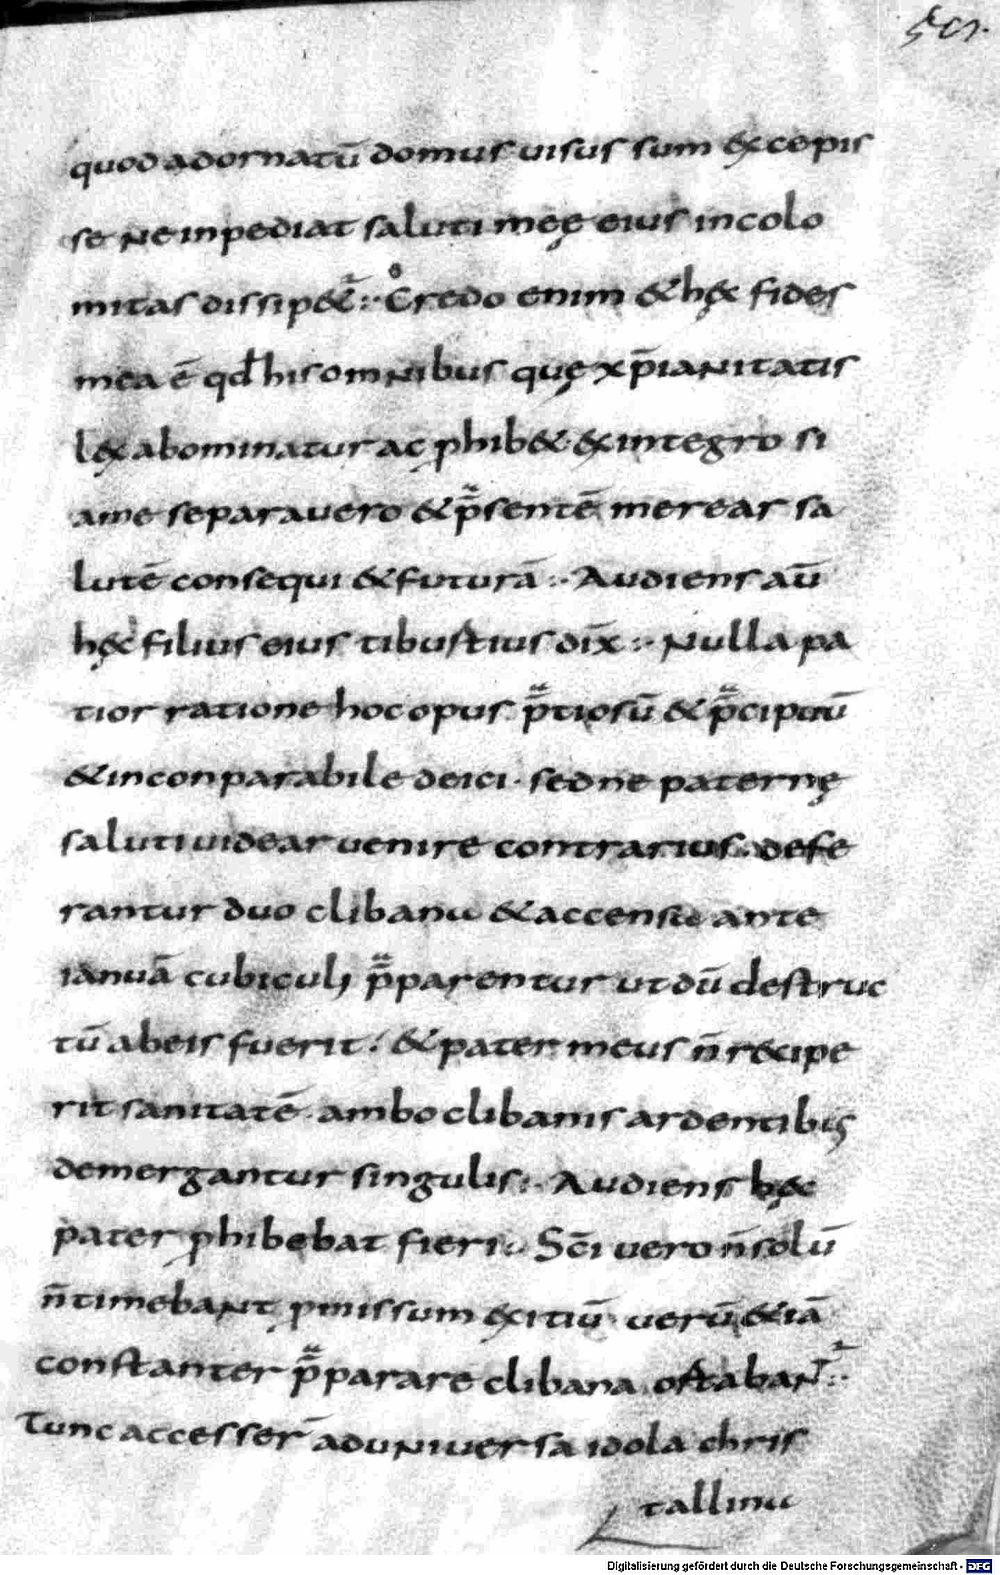 quod adornatū domus uisus sum excepis
se ne inpediat saluti meę eius incolo
mitas dissip&ur:· Credo enim & hęc fides
mea ē qđ his omnibus quę xp̄ianitatis
lex abominatur ac ꝓhib& ex integro si
a me separauero & p̄sentē merear sa
lutē consequi & futurā:· Audiens aū
hęc filius eius tibustius dix̄:· Nulla pa
tior ratione hoc opus p̄tiosū & p̄cipuū
& inconparabile deici· sed ne paternę
saluti uidear uenire contrarius· defe
rantur duo clibani & accensi ante
ianuā cubiculi p̄parentur ut dū destruc
tū ab eis fuerit· & pater meus n̄ recipe
rit sanitatē· ambo clibanis ardentibus
demergantur singulis:· Audiens hęc
pater ꝓhibebat fieri:· Sc̄i uero n̄ solū
n̄ timebant ꝓmissum exitiū· uerū & iā
constanter p̄parare clibana ostabant:·
Tunc accesser̄ ad uniuersa idola chris
tallina